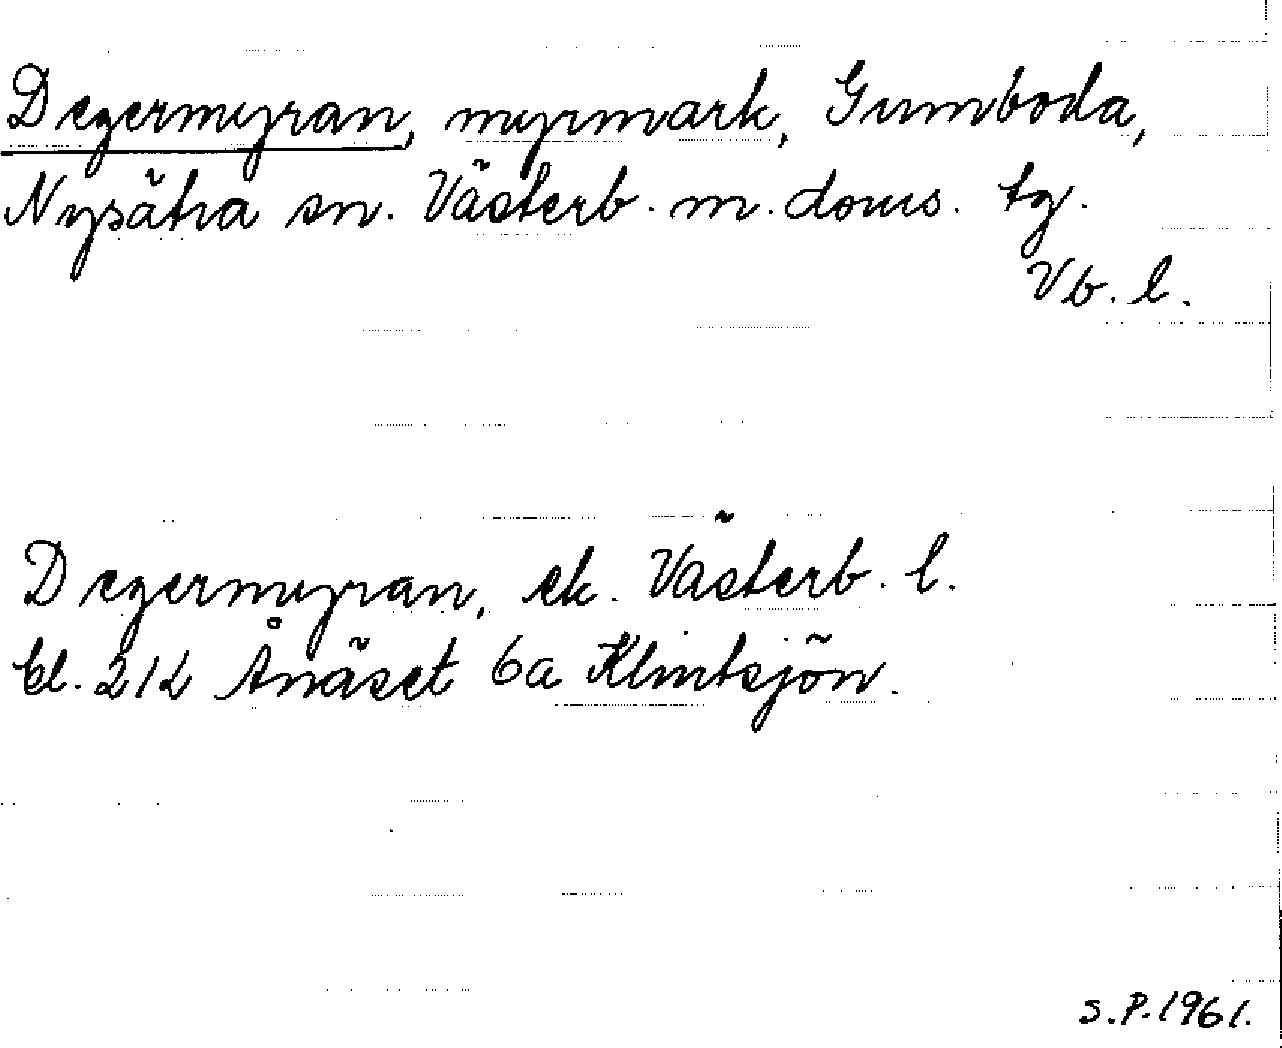 Degermyran, myrmark, Gumboda,
Nysätra sn. Västerb. m. doms. tg.
Vb. l.
Degermyran, ek. Västerb. l.
bl. 212 Ånäset 6a Klintsjön.
S.P. 1961.